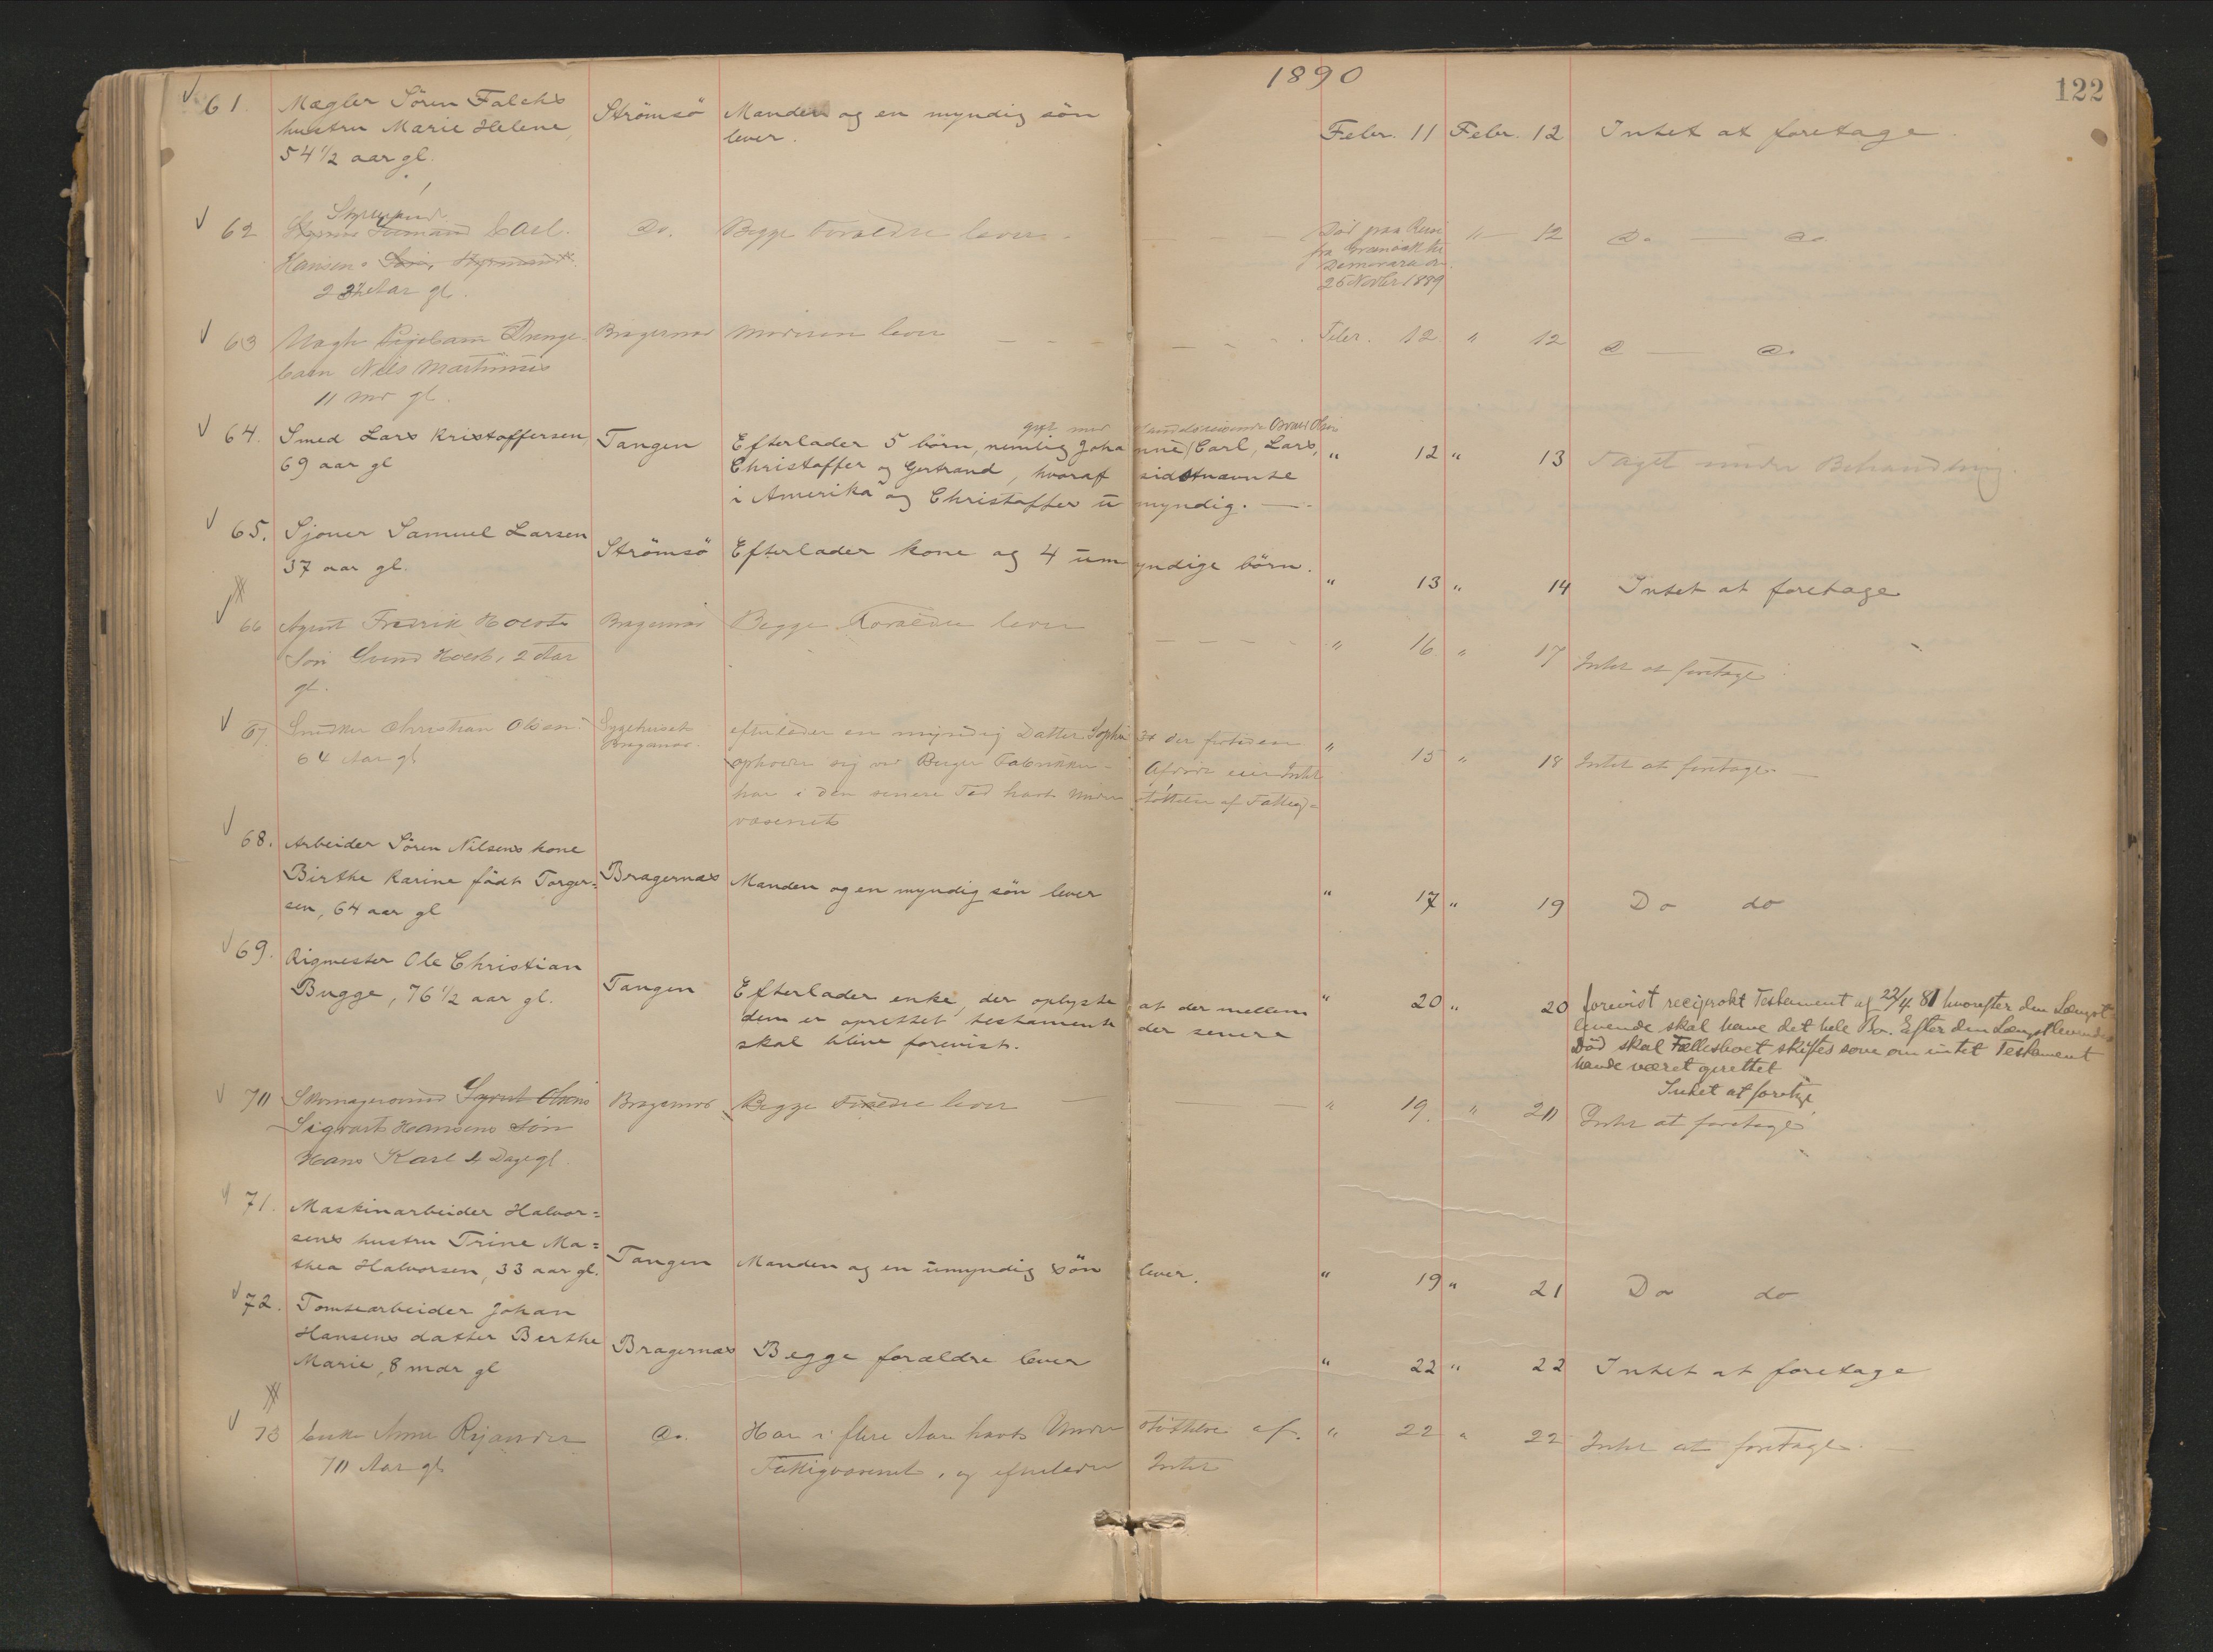 1890
122
61. Mægler Sören Falcks Strömsö Manden og en myndig sön Febr. 11 Febr. 12 Intet at foretage
hustru Marie Helene, lever.
54 1/2 aar gl.
Styrmand
62 Carl Do. Begge Forældre lever. Död paa Reise " 12 Do Do.
Hansen, Styrmand fra til
Demerara den
Aar gl. 25 Novbr 1889
63 Pigebarn Drenge- Bragernæs Moderen lever Febr. 12 " 12 D Do.
barn Nils Martinius
11 Md gl.
gift med Handelsreisende Olsen
64. Smed Lars Kristoffersen, Tangen Efterlader 5 börn, nemlig Johanne, Carl, Lars, " 12 " 13 Taget under Behandling.
69 aar gl Christoffer og Gertrand, hvoraf sidstnævnte
i Amerika og Christoffer umyndig.
65. Sjouer Samuel Larsen Strömsö Efterlader kone og 4 umyndige börn. " 13 " 14 Intet at foretage
37 aar gl.
66 Agent Fredrik Hoelsts Bragernæs Begge Forældre lever " 16 " 17 Intet at foretage
Sön, 2 Aar
gl.
67 Snedker Christian Olsen Sygehuset Bragernæs. efterlader en myndig Datter Sophie der fortiden " 15 " 18 Intet at foretage
64 Aar gl opholder sig ved Berger Fabrikker. Afdöde eier Intet
har i den senere Tid havt Understöttelse af Fattig=
væsenet
68. Arbeider Sören Nilsens kone
Birthe Karine födt Torger= Bragernæs Manden og en myndig sön lever " 17 " 19 Do do
sen, 64 aar gl
69. Rigmester Ole Christian
Bugge, 76 1/2 aar gl. Tangen Efterlader enke, der oplyste at der mellem " 20 " 20 forevist reciprokt Testament af 22/4 81 hvorefter den Længst=
dem er oprettet testamente der senere levende skal have det hele Bo. Efter den Længstlevendes
skal blive forevist. Död skal Fællesboet skiftes som om intet Testament
havde været oprettet
Intet at foretage
70 Skomagersvend Bragernæs Begge Forældre lever " 19. " 20 Intet at foretage
Sigvart Hansens Sön
Hans Karl Dage gl
71. Maskinarbeider Halvor=
sens hustru Trine Ma= Tangen Manden og en umyndig sön lever. " 19 " 21 Do do
thea Halvorsen, 33 aar gl.
72. Tomtearbeider Johan
Hansens datter Berthe Bragernæs Begge forældre lever " 22 " 22 Intet at foretage
Marie, 8 mdr gl
73 Enke Anne Rejander Do. Har i flere Aar havt Understöttelse af " 22 " 22 Intet at foretage.
70 Aar gl Fattigvæsenet, og efterlader Intet